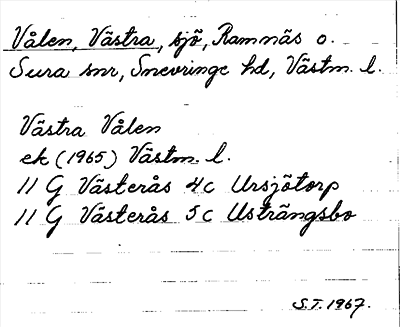 Vålen, Västra, sjö, Ramnäs o.
Sura snr, Snevringe hd, Västm. l.
Västra Vålen
ek (1965) Västm. l.
11 G Västerås 4c Ursjötorp
11 G Västerås 5c Usträngsbo
S.T. 1967.